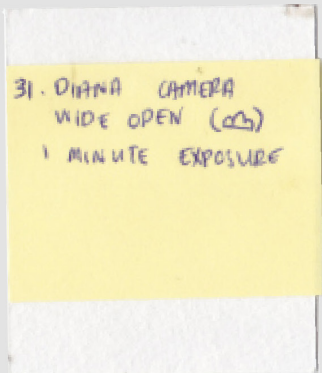 31. DIANA CAMERA
WIDE OPEN (☁)
1 MINUTE EXPOSURE